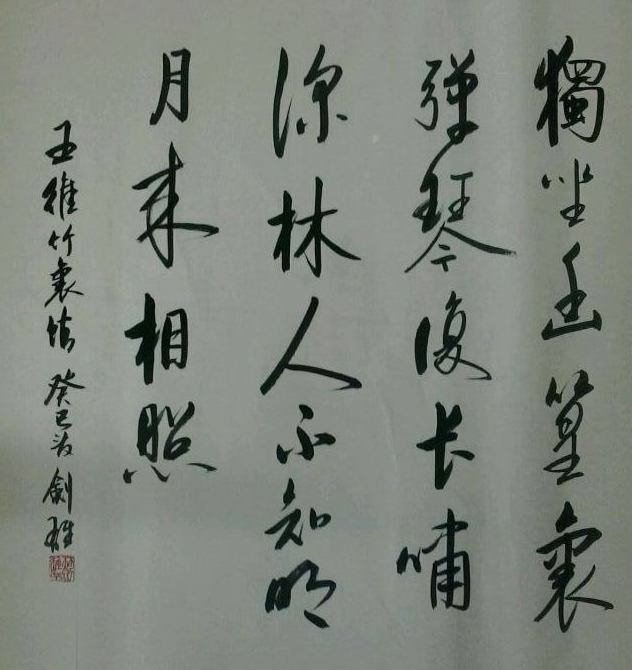 獨坐幽篁裏
弹琴復长嘯
深林人不知明
月来相照
王維竹裏馆 癸巳 劍雄